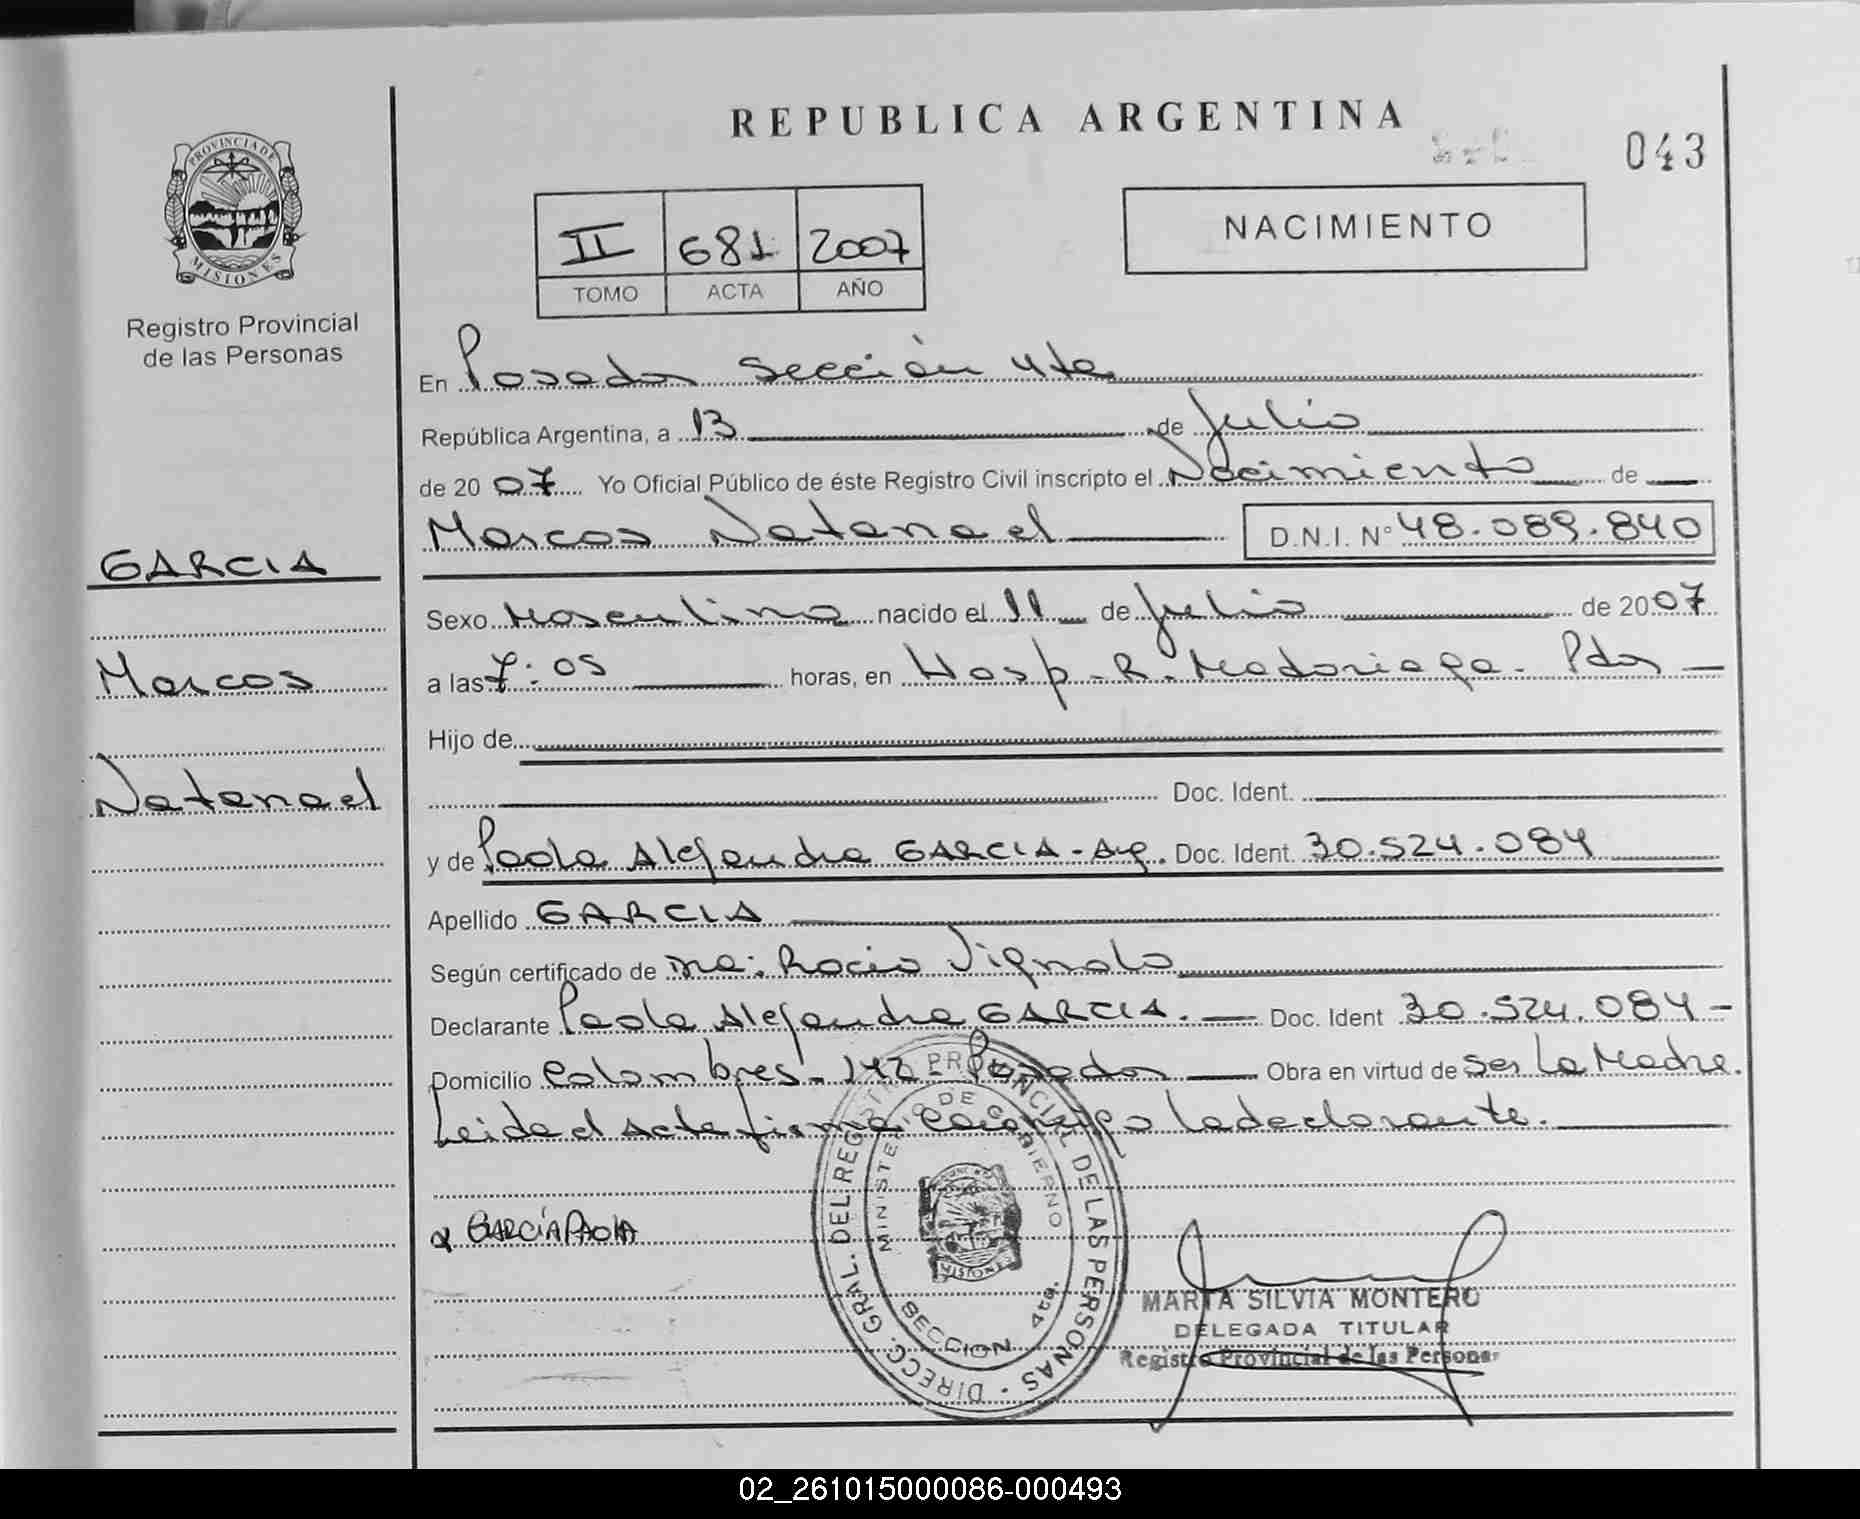 REPUBLICA ARGENTINA
043
PROVINCIA DE
MISIONES
Registro Provincial
de las Personas
II 681 2007
TOMO ACTA AÑO
NACIMIENTO
En Posadas Sección 4ta
República Argentina, a 13 de Julio
de 2007 Yo Oficial Público de éste Registro Civil inscripto el Nacimiento de
Marcos Natanael D.N.I. N° 48.089.840
GARCIA
Marcos
Natanael
Sexo Masculino nacido el 11 de Julio de 2007
a las 7:05 horas, en Hosp. R. Madariaga - Pdas
Hijo de
Doc. Ident.
y de Paola Alejandra GARCIA - Arg. Doc. Ident. 30.524.084
Apellido GARCIA
Según certificado de Rocio Vignolo
Declarante Paola Alejandra GARCIA. Doc. Ident 30.524.084
Domicilio Colombres - 142 Posadas Obra en virtud de Ser La Madre.
Leida el Acta firma conmigo la declarante.
GARCÍA PAOLA
DIRECC. GRAL. DEL REGISTRO PROVINCIAL DE LAS PERSONAS
MINISTERIO DE GOBIERNO
MISIONES
SECCION 4ta.
MARTA SILVIA MONTERO
DELEGADA TITULAR
Registro Provincial de las Personas
02_261015000086-000493